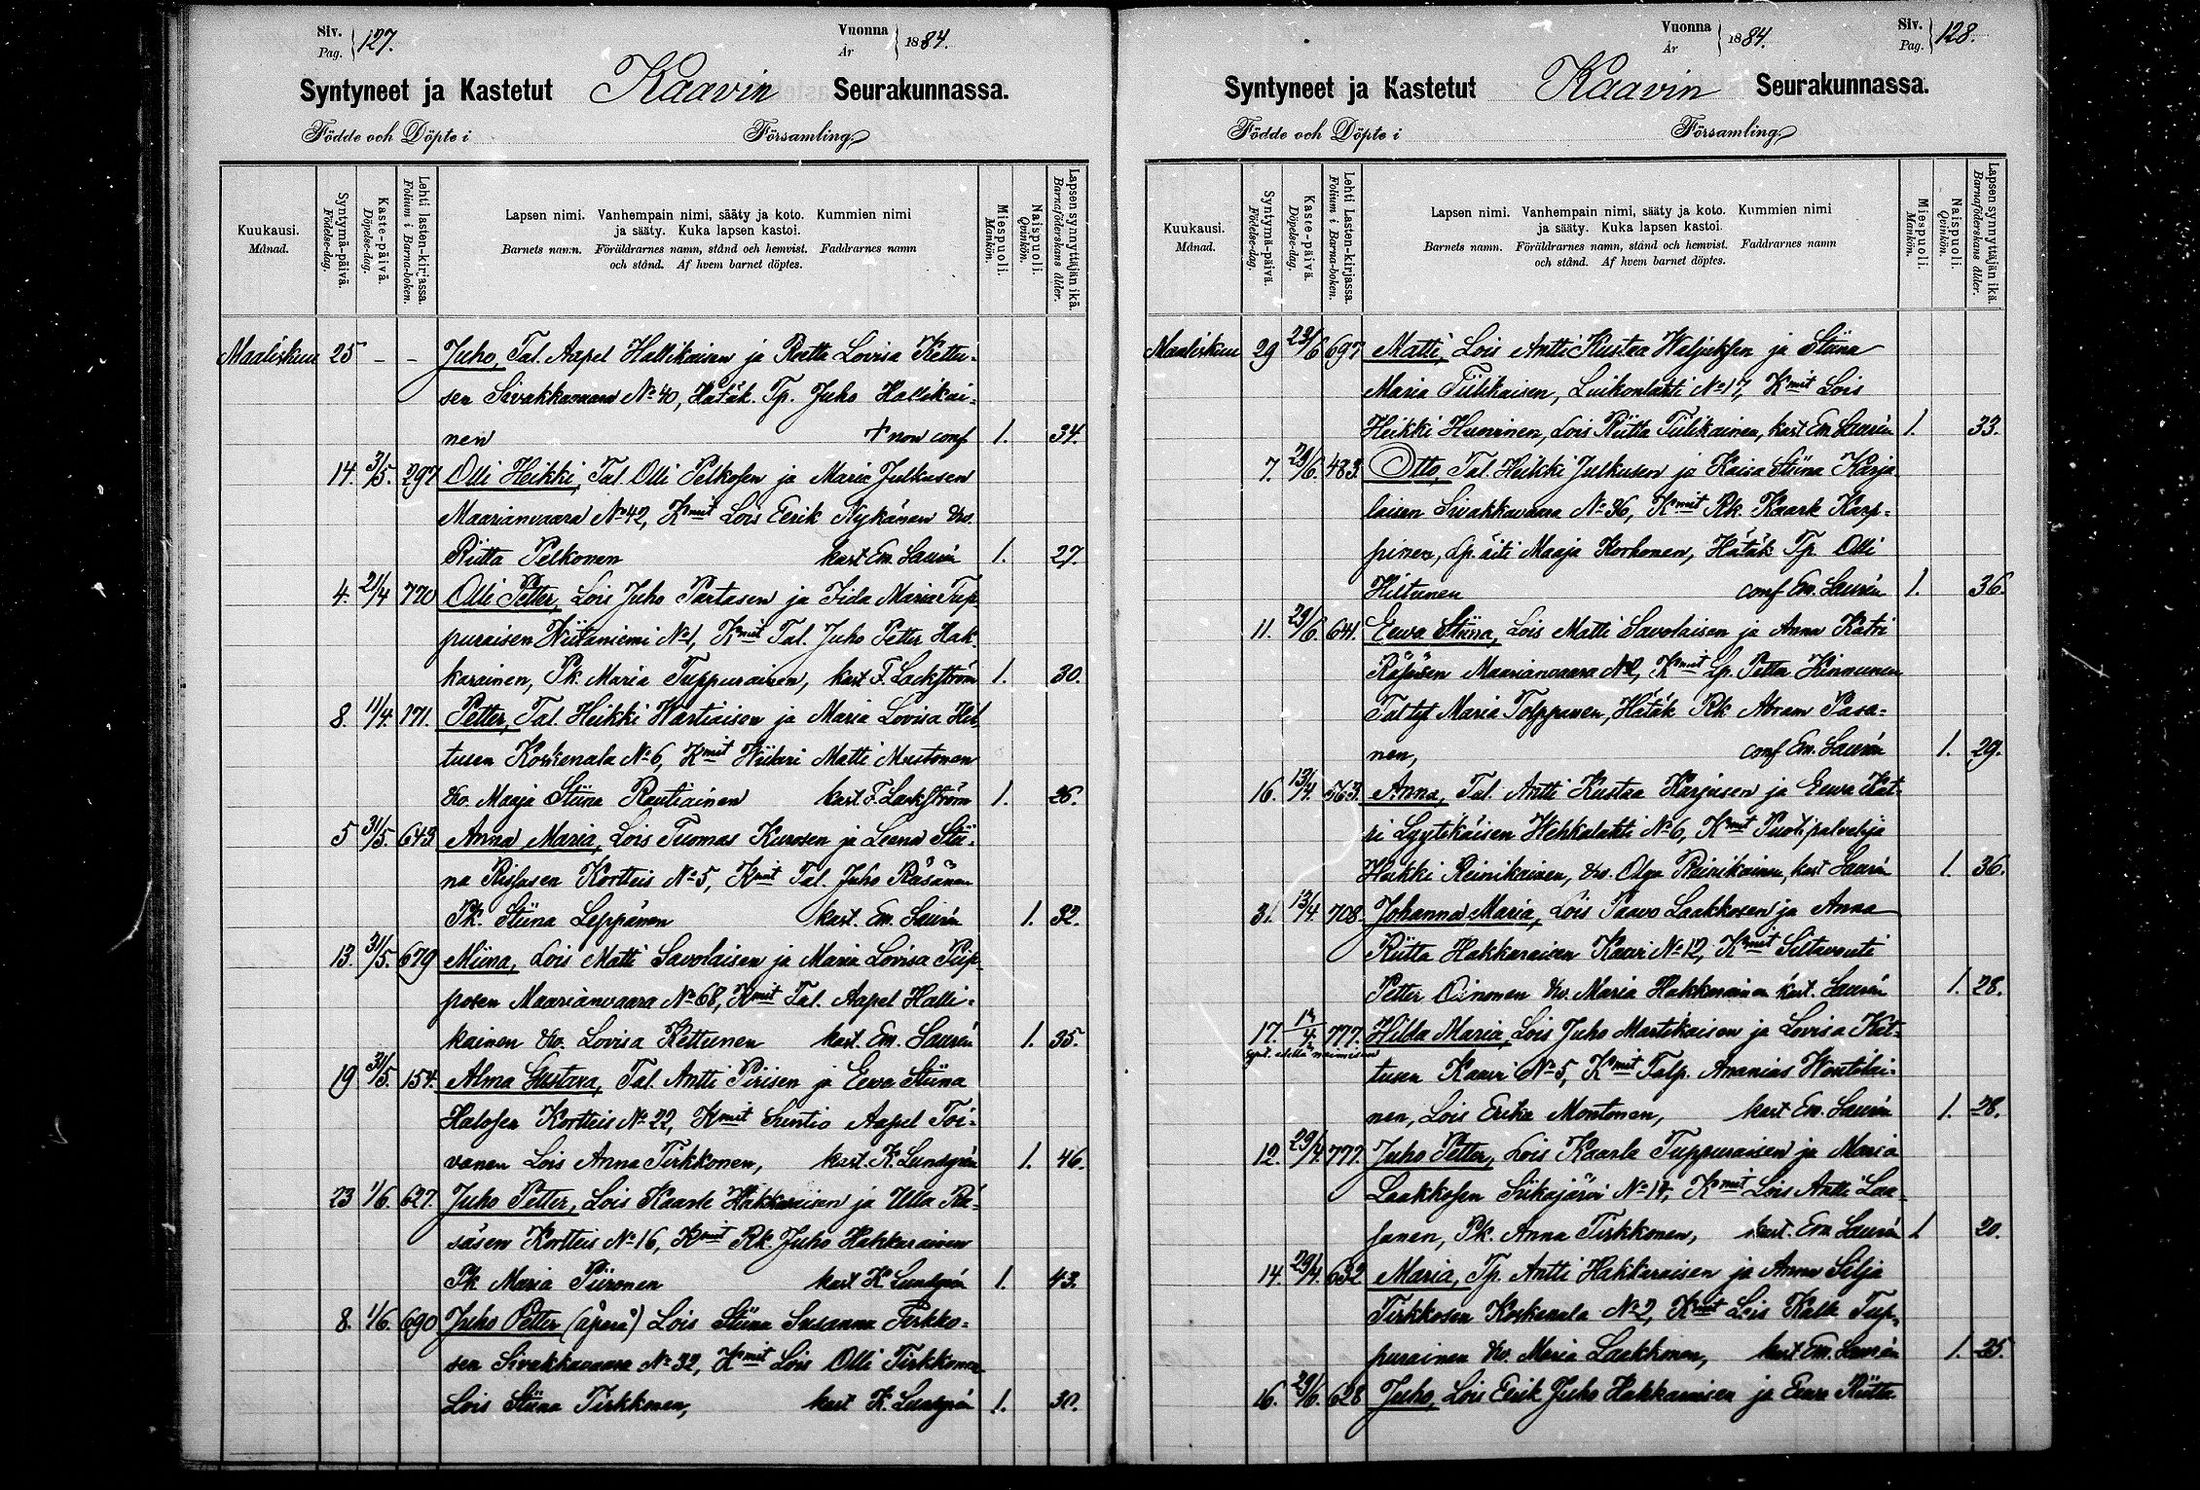 Siv. Pag. 127.
Vuonna År 1884.
Syntyneet ja Kastetut Kaavin Seurakunnassa.
Födde och Döpte i Församling
Kuukausi. Månad.
Syntymä-päivä. Födelse-dag.
Kaste-päivä. Döpelse-dag.
Lehti lasten-kirjassa. Folium i Barna-boken.
Lapsen nimi. Vanhempain nimi, sääty ja koto. Kummien nimi
ja sääty. Kuka lapsen kastoi.
Barnets namn. Föräldrarnes namn, stånd och hemvist. Faddrarnes namn
och stånd. Af hvem barnet döptes.
Miespuoli. Mankön.
Naispuoli. Qvinkön.
Lapsen synnyttäjän ikä. Barnaföderskans ålder.
Maaliskuu 25 - - Juho, Tal. Aapel Hallikaisen ja Reetta Lovisa Kettu-
sen Sivakkavaara No 40, Hätäk. Tp. Juho Hallikai-
nen + non conf 1. 34.
14. 3/5. 297 Olli Heikki, Tal. Olli Pelkosen ja Maria Julkusen
Maarianvaara No 42, Kmit Lois Eerik Nykänen Vro.
Riitta Pelkonen kast. Em. Laurén 1. 27.
4. 21/4 770 Olli Petter, Lois Juho Partasen ja Iida Maria Tup-
puraisen Niitaniemi No 1, Kmit Tal. Juho Petter Hak-
karainen, Pk. Maria Tuppurainen, kast F. Lackström 1. 30.
8. 11/4. 171. Petter, Tal. Heikki Wartiaisen ja Maria Lovisa Hil-
tusen Koskenala No 6, Kmit Wiikari Matti Mustonen
Vro. Maaja Stiina Rautiainen kast F. Lackström 1. 26.
5 31/5. 643 Anna Maria, Lois Tuomas Kurosen ja Leena Stii-
na Rissasen Kortteis No 5, Kmit Tal. Juho Räsänen
Pk. Stiina Leppänen kast. Em. Laurén 1. 32.
13. 31/5. 679 Miina, Lois Matti Savolaisen ja Maria Lovisa Piip-
posen Maarianvaara No 68, Kmit Tal. Aapel Halli-
kainen Vro. Lovisa Kettunen kast. Em. Laurén 1. 35.
19 31/5. 154. Alma Gustava, Tal. Antti Piiisen ja Eewa Stiina
Halosen Kortteis No 22, Kmit Suntio Aapel Toi-
vanen Lois Anna Tirkkonen, kast. K. Lundgrén 1. 46.
23 1/6. 627. Juho Petter, Lois Kaarle Hakkaraisen ja Ulla Rä-
säsen Kortteis No 16, Kmit Rk. Juho Hakkarainen
Pk Maria Piironen kast K. Lundgrén 1. 43.
8. 1/6. 690 Juho Petter (äpärä) Lois Stiina Susanna Tirkko-
sen Sivakkavaara No 32, Kmit Lois Olli Tirkkonen
Lois Stiina Tirkkonen, kast K. Lundgrén 1. 30.
Vuonna År 1884.
Siv. Pag. 128.
Syntyneet ja Kastetut Kaavin Seurakunnassa.
Födde och Döpte i Församling
Kuukausi. Månad.
Syntymä-päivä. Födelse-dag.
Kaste-päivä. Döpelse-dag.
Lehti Lasten-kirjassa. Folium i Barna-boken.
Lapsen nimi. Vanhempain nimi, sääty ja koto. Kummien nimi
ja sääty. Kuka lapsen kastoi.
Barnets namn. Föräldrarnes namn, stånd och hemvist. Faddrarnes namn
och stånd. Af hvem barnet döptes.
Miespuoli. Mankön.
Naispuoli. Qvinkön.
Lapsen synnyttäjän ikä. Barnaföderskans ålder.
Maaliskuu 29 22/6 697 Matti, Lois Antti Kustaa Waljuksen ja Stiina
Maria Tiilikaisen, Luikonlahti No 17, Kmit Lois
Heikki Huuninen, Lois Riitta Tiilikainen, kast Em Laurén 1. 33.
7. 29/6. 483. Otto, Tal. Heikki Julkusen ja Kaisa Stiina Karja-
laisen Sivakkavaara No 36, Kmit Rk. Kaarle Karp-
pinen, Lp. äiti Maaja Korhonen, Hätäk Tp Olli
Hiltunen conf Em. Laurén 1. 36.
11. 29/6. 641. Eewa Stiina, Lois Matti Savolaisen ja Anna Katri
Räsäsen Maarianvaara No 2, Kmit Lp. Petter Kinnunen
Tal tyt Maria Tolppanen, Hätäk Rk Abram Pasa-
nen, conf Em. Laurén 1. 29.
16. 13/4. 563. Anna, Tal. Antti Kustaa Karjusen ja Eewa Kat-
ri Lyytikäisen Wehkalahti No 6, Kmit Puotipalvelija
Heikki Reinikainen, Vro. Olga Reinikainen, kast Laurén 1. 36.
31. 13/4. 708. Johanna Maria, Lois Paavo Laakkosen ja Anna
Riitta Hakkaraisen Kaavi No 12, Kmit Siltavouti
Petter Oinonen Vro. Maria Hakkarainen kast. Laurén 1. 28.
17. 13/4. 777. Hilda Maria, Lois Juho Martikaisen ja Lovisa Kät-
synt. edellä naimisen
tusen Kaavi No 5, Kmit Talp. Ananias Wontilai-
nen, Lois Erika Montonen, kast Em. Laurén 1. 28.
12. 29/4. 777. Juho Petter, Lois Kaarle Tuppuraisen ja Maria
Laakkosen Siikajärvi No 14, Kmit Lois Antti Laa-
sanen, Pk. Anna Tirkkonen, kast. Em. Laurén 1 20.
14. 29/4. 632 Maria, Tp. Antti Hakkaraisen ja Anna Silja
Tirkkosen Koskenala No 2, Kmit Lois Kalle Tup-
purainen Vro. Maria Laakkonen, kast. Em. Laurén 1. 25.
16. 29/6. 628 Juho, Lois Eerik Juho Hakkaraisen ja Eewa Riitta